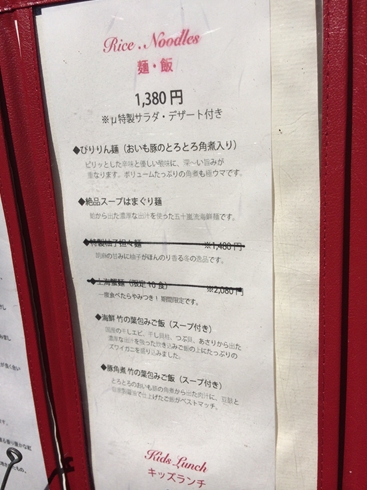 Rice, Noodles
麺・飯
1,380 円
※μ特製サラダ・デザート付き
◆ぴりりん麺（おいも豚のとろとろ角煮入り）
ピリッとした辛味と優しい酸味に、深〜い旨みが
重なります。ボリュームたっぷりの角煮も極ウマです。
◆絶品スープはまぐり麺
蛤から出た濃厚な出汁を使った五十嵐流海鮮麺です。
◆特製柚子担々麺 ※1,480 円
胡麻の甘みに柚子がほんのり香る冬の逸品です。
◆上海蟹麺（限定 10 食） ※2,080 円
一度食べたらやみつき！期間限定です。
◆海鮮 竹の葉包みご飯（スープ付き）
国産の干しエビ、干し貝柱、つぶ貝、あさりから出た
濃厚な出汁を使った炊き込みご飯の上にたっぷりの
ズワイガニを盛り込みました。
◆豚角煮 竹の葉包みご飯（スープ付き）
とろとろのおいも豚の角煮から出た肉汁に、
で仕上げたご飯がベストマッチ。
Kids Lunch
キッズランチ